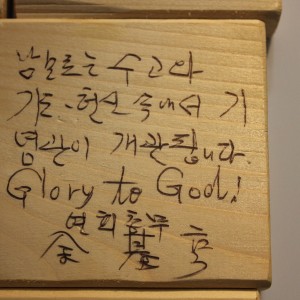 남모르는 수고와
기도·헌신 속에서 기
념관이 개관됩니다.
Glory to God!
연회총무
金